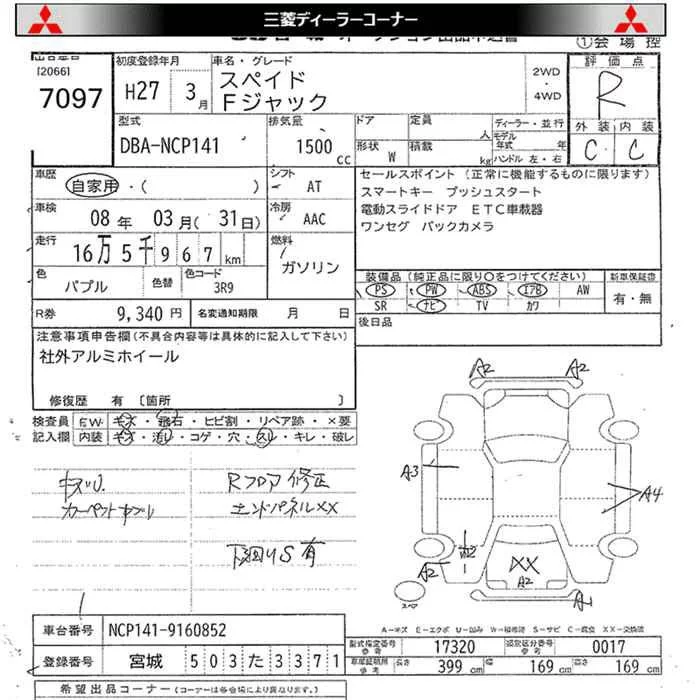 三菱ディーラーコーナー
①会場控
出品番号 初度登録年月 車名・グレード 2WD・4WD 評価点
(2066)
7097 H27 3月 スペイド Fジャック R
型式 排気量 ドア 定員 人 ディーラー・並行 外装 内装
DBA-NCP141 1500cc 形状 W 積載 kg モデル年式 年 ハンドル 左・右 C C
車歴 自家用・( ) シフト AT セールスポイント (正常に機能するものに限ります)
スマートキー プッシュスタート
車検 08年 03月(31日) 冷房 AAC 電動スライドドア ETC車載器
ワンセグ バックカメラ
走行 16万5千967km 燃料 ガソリン
色 パプル 色替 色コード 3R9 装備品(純正品に限り○をつけてください) 新車保証書
PS PW ABS エアB AW 有・無
SR ナビ TV カワ
R券 9,340円 名変通知期限 月 日 後日品
注意事項申告欄(不具合内容等は具体的に記入して下さい)
社外アルミホイール
修復歴 有 〔箇所 〕
検査員 EW キズ・飛石・ヒビ割・リペア跡・×要
記入欄 内装 キズ・汚レ・コゲ・穴・スレ・キレ・破レ
Rフロア修正
エンドパネルXX
下回りS有
A2 A2
A3 A4
XX
A2 A2
A1
A-キズ E-エクボ U-凹み W-補修跡 S-サビ C-腐食 XX-交換済
車台番号 NCP141-9160852
型式指定番号 参考 17320 類別区分番号 参考 0017
登録番号 宮城 503た3371
車庫証明用 参考 長さ 399cm 幅 169cm 高さ 169cm
希望出品コーナー (コーナーは各会場により異なります。)